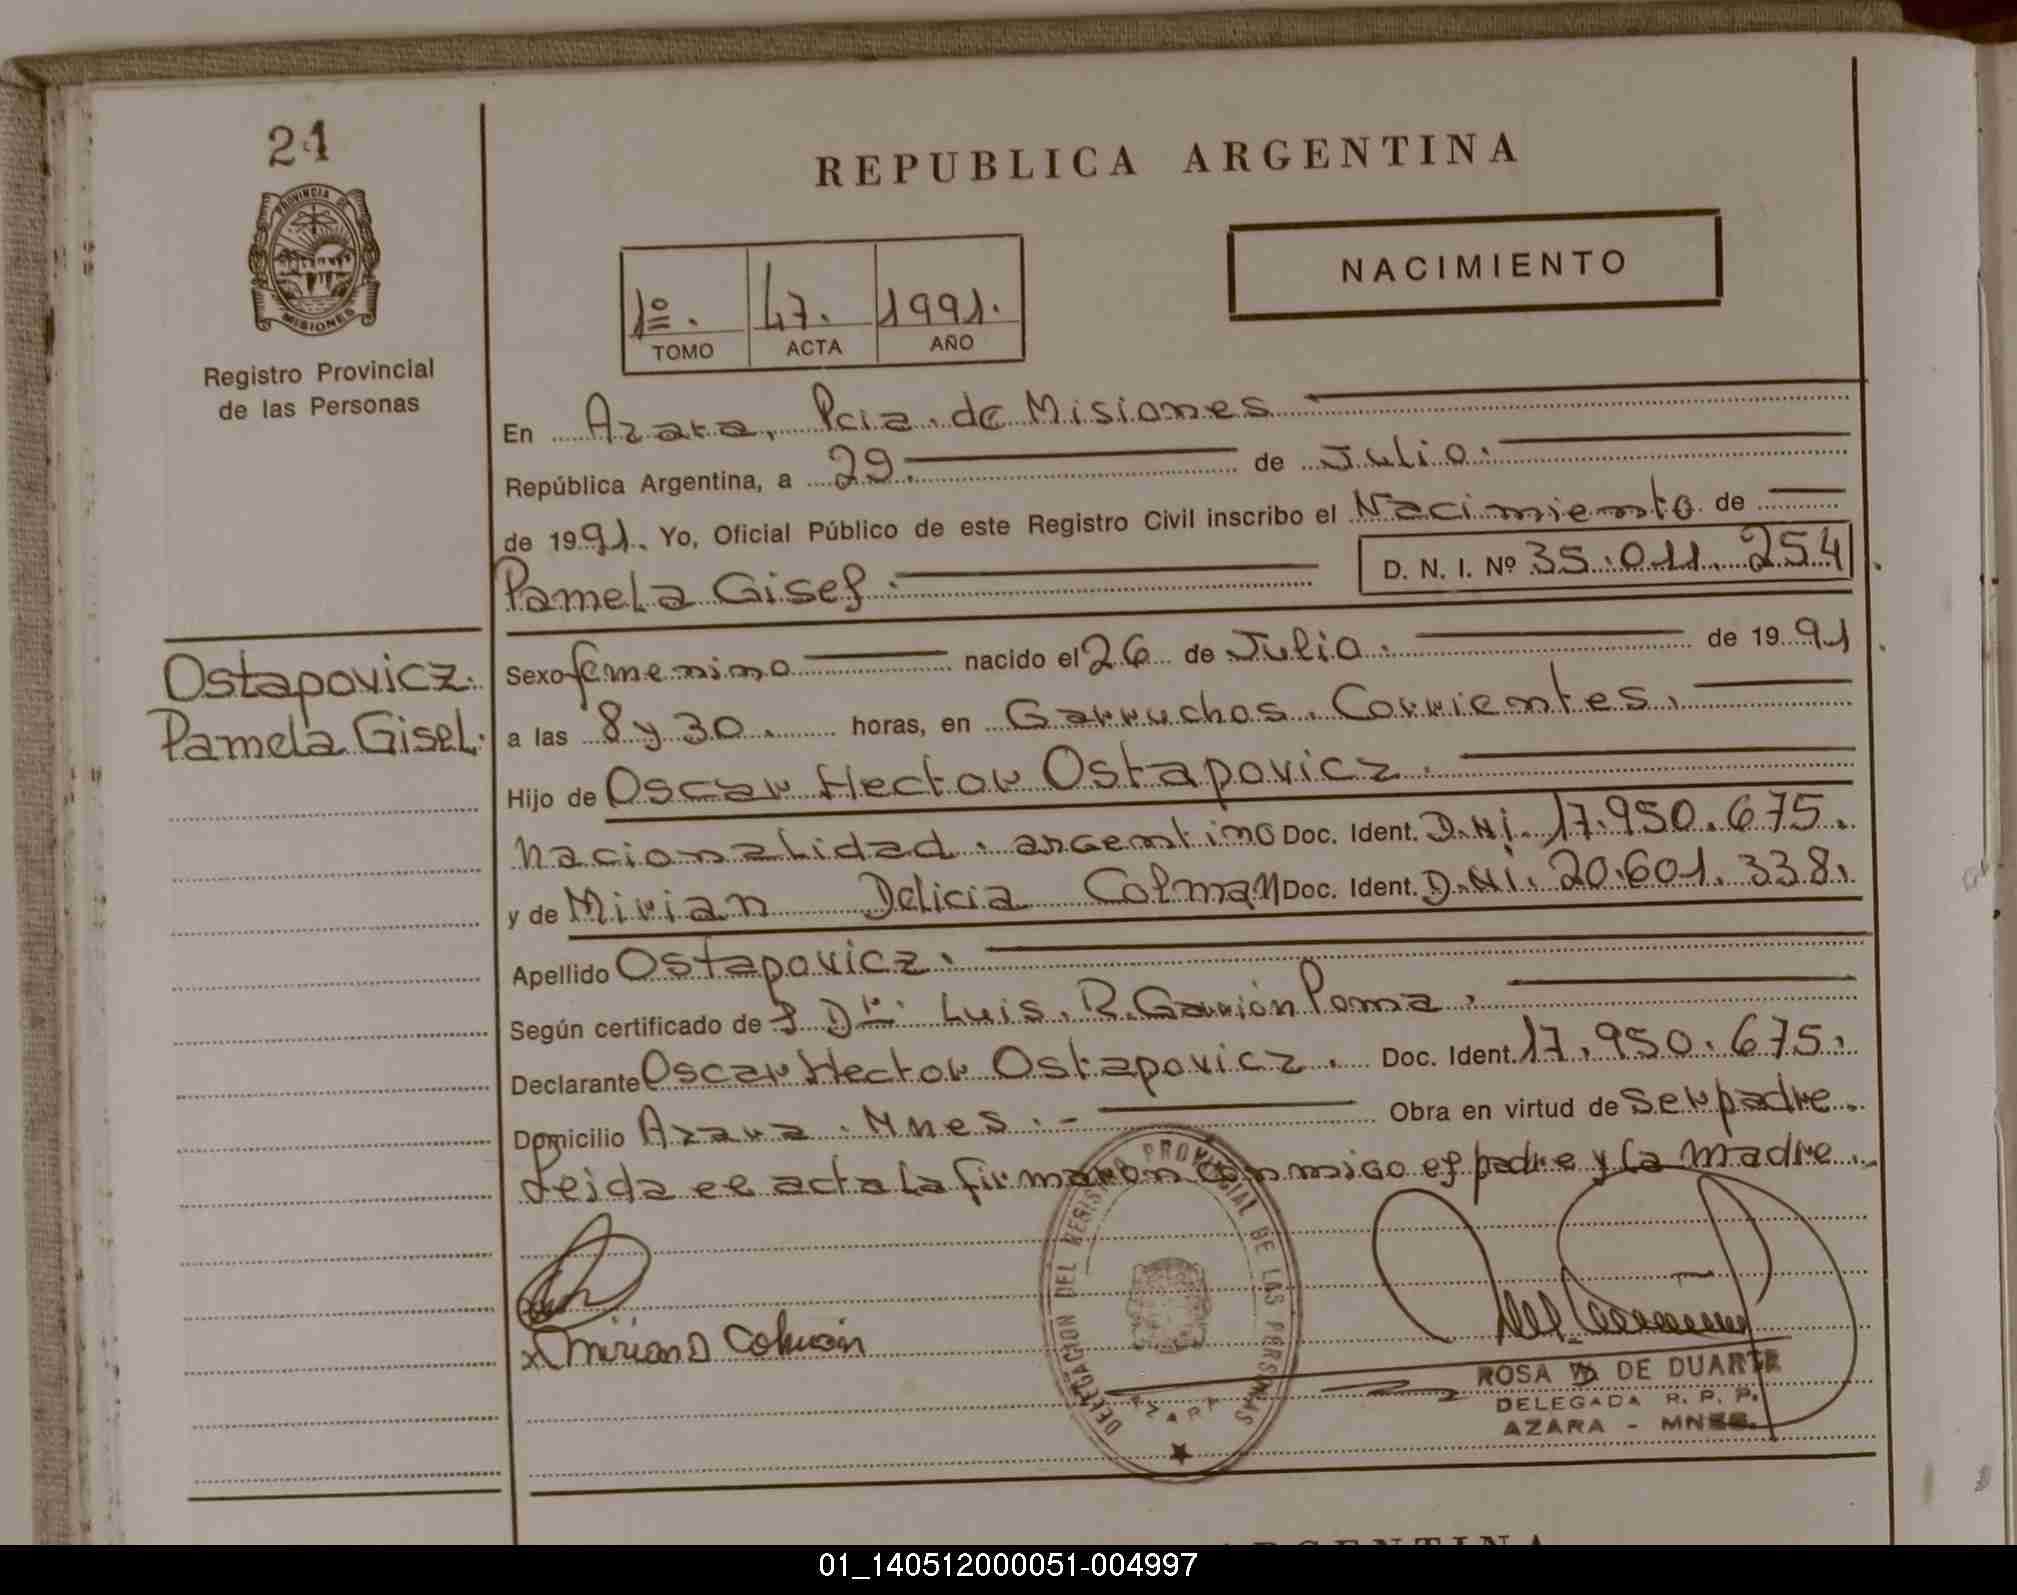 21
REPUBLICA ARGENTINA
PROVINCIA DE
MISIONES
NACIMIENTO
1º. 47. 1991.
TOMO ACTA AÑO
Registro Provincial
de las Personas
En Azara, Pcia. de Misiones
República Argentina, a 29. de Julio.
de 1991. Yo, Oficial Público de este Registro Civil inscribo el Nacimiento de
Pamela Gisel. D. N. I. Nº 35.011.254
Ostapovicz.
Pamela Gisel.
Sexo femenino nacido el 26 de Julio. de 1991
a las 8 y 30. horas, en Garruchos. Corrientes.
Hijo de Oscar Hector Ostapovicz.
nacionalidad. argentino Doc. Ident. D.Ni. 17.950.675.
y de Mirian Delicia Colman Doc. Ident. D.Ni. 20.601.338.
Apellido Ostapovicz.
Según certificado de l Dr. Luis. R. Poma.
Declarante Oscar Hector Ostapovicz. Doc. Ident. 17.950.675.
Domicilio Azara. Mnes. - Obra en virtud de ser padre.
Leida el acta la firmaron conmigo el padre y la madre.
DELEGACION DEL REGISTRO PROVINCIAL DE LAS PERSONAS
AZARA
x Mirian D Colman
ROSA DE DUARTE
DELEGADA R. P. P.
AZARA - MNES.
ARGENTINA
01_140512000051-004997